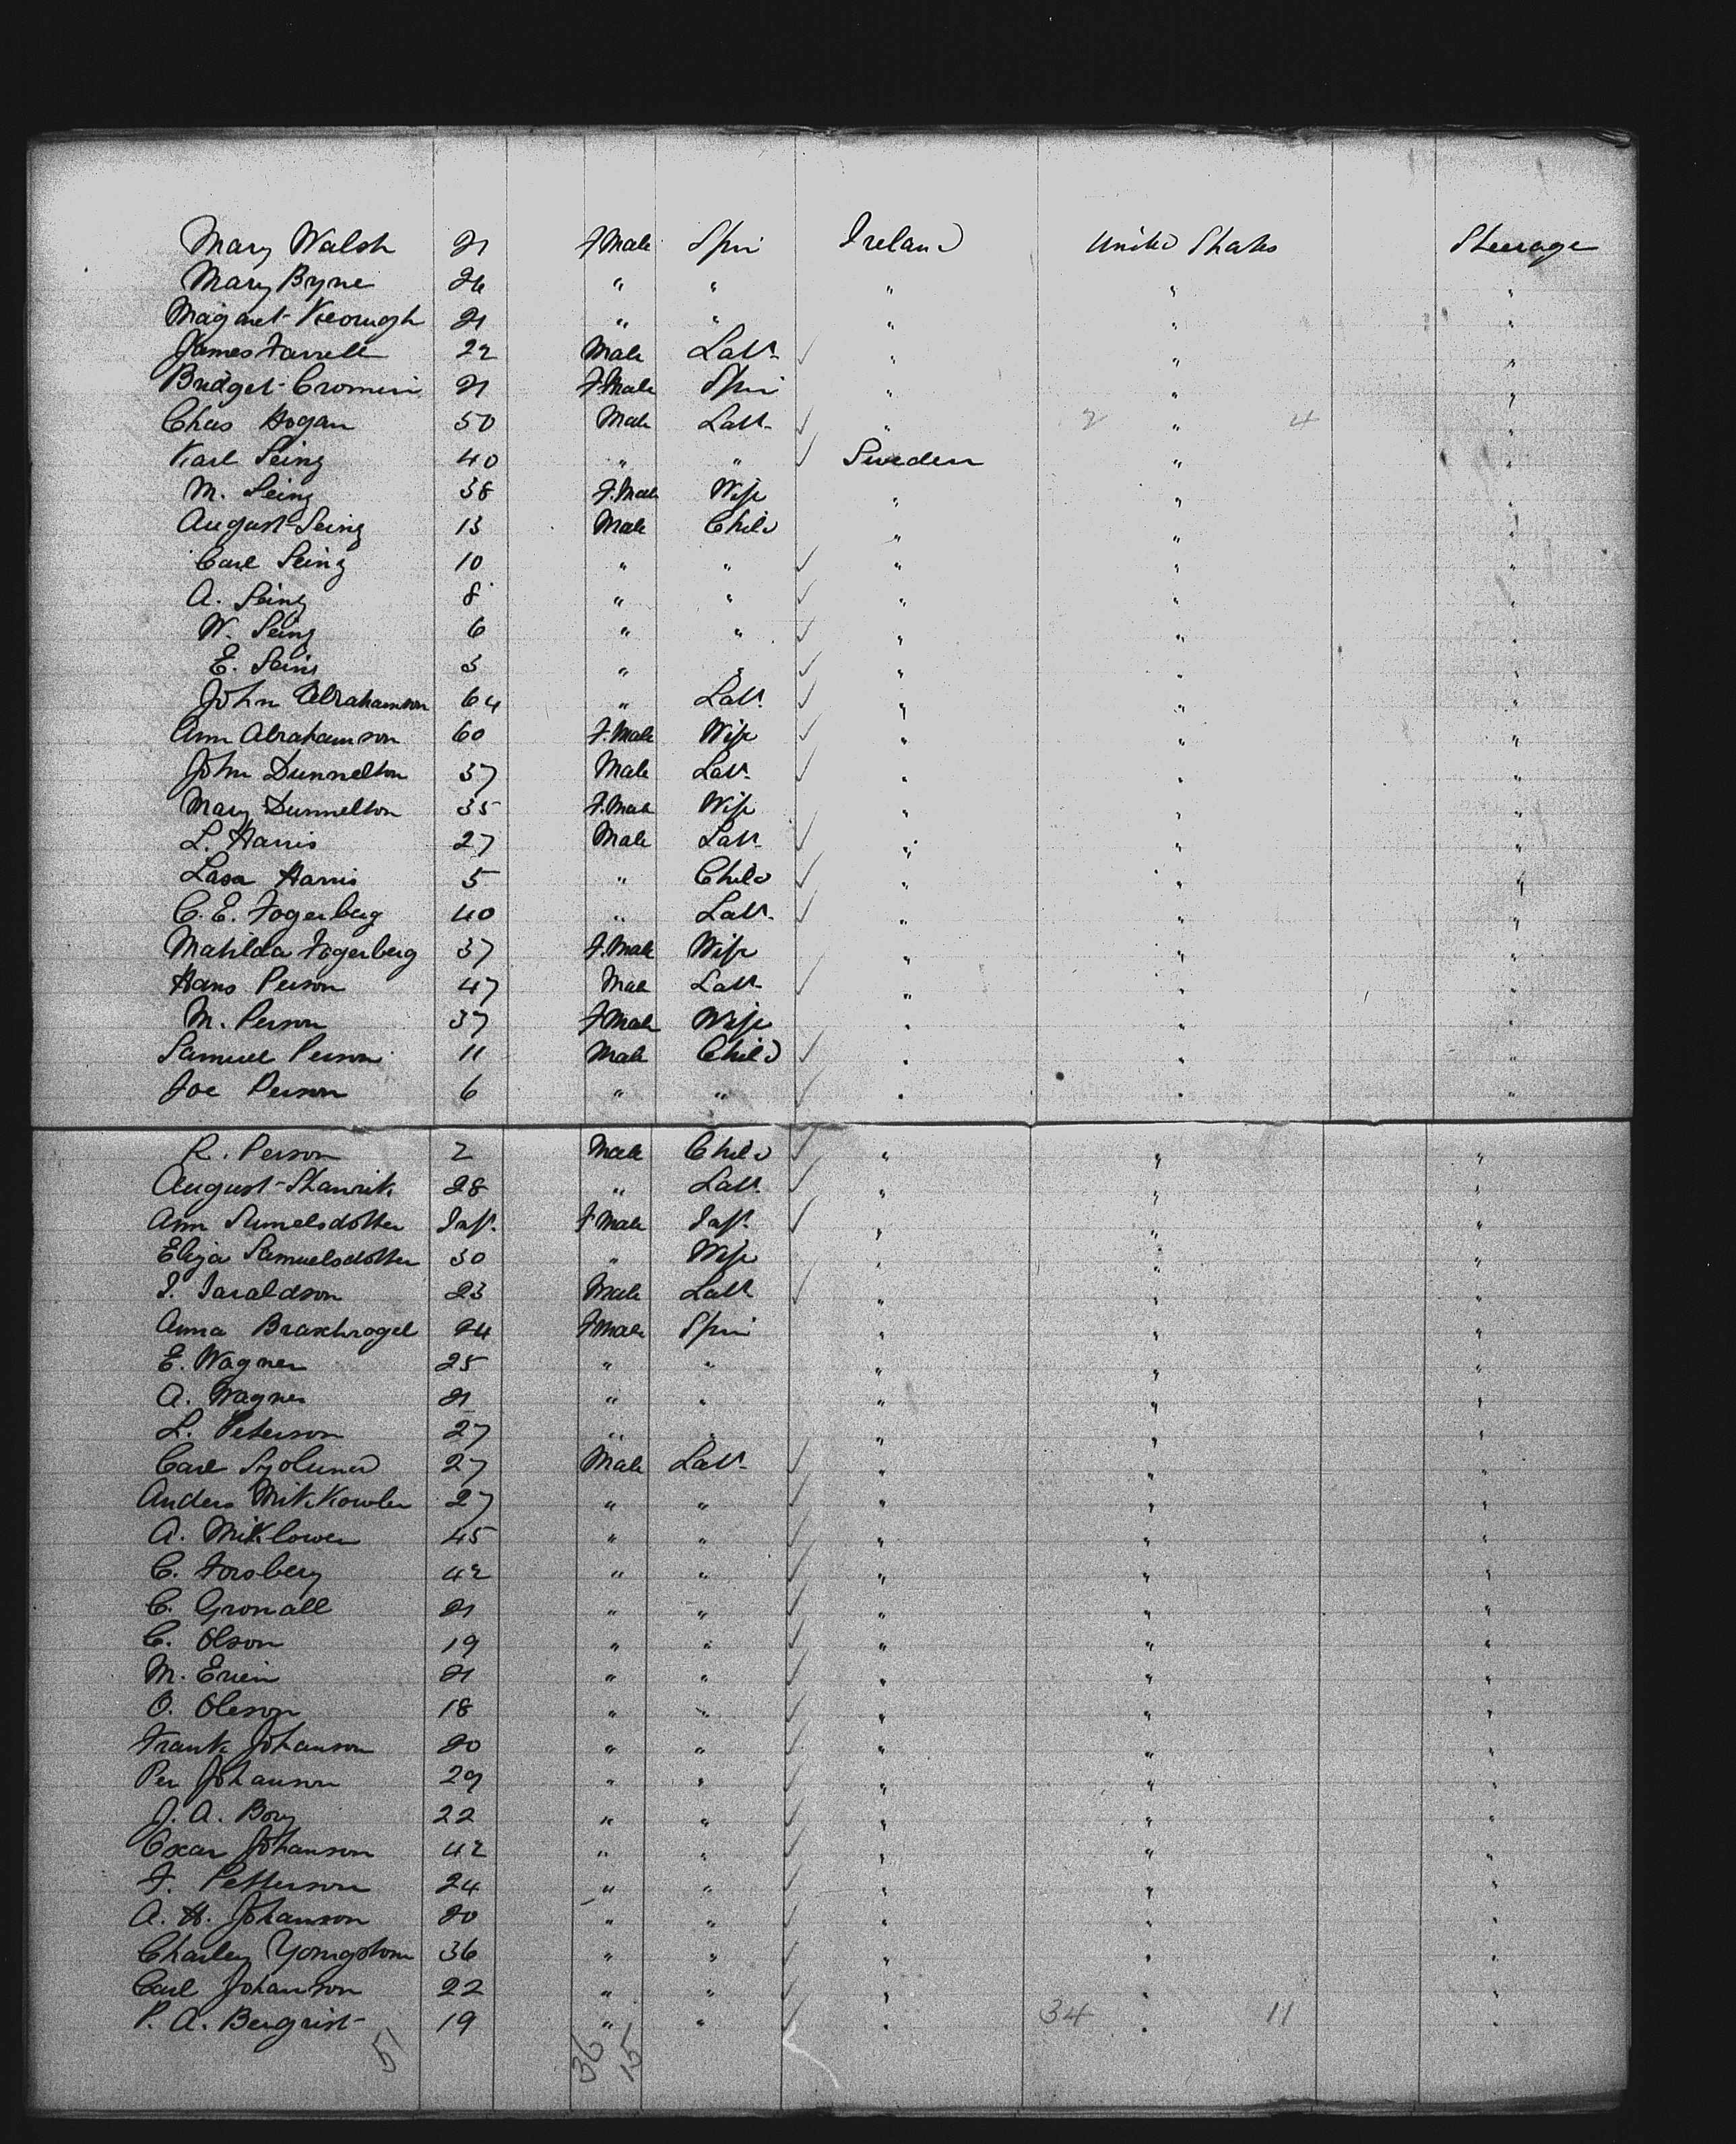 Mary Walsh 21 F Male Spin Ireland United States Steerage
Mary Byrne 26 " " " " "
Magaret Keoungh 21 " " " " "
James Farrell 22 Male Labr ✓ " " "
Bridget Cromin 21 F. Male Spin " " "
Chas Hogan 50 Male Labr ✓ " 2 " 4 "
Karl Seing 40 " " ✓ Sweden " "
M. Seing 38 F. Male Wife " " "
August Seing 13 Male Child " " "
Carl Seing 10 " " ✓ " " "
A. Seing 8 " " ✓ " " "
W. Seing 6 " " ✓ " " "
E. Seing 3 " " ✓ " " "
John Abrahamson 64 " Labr ✓ " " "
Ann Abrahamson 60 F. Male Wife ✓ " " "
John Dunnelton 37 Male Labr ✓ " " "
Mary Dunnelton 35 F. Male Wife " " "
L. Harris 27 Male Labr ✓ " " "
Lasa Harris 5 " Child ✓ " " "
C. E. Fogerberg 40 " Labr ✓ " " "
Matilda Fogerberg 37 F. Male Wife " " "
Hans Person 47 Male Labr ✓ " " "
M. Person 37 F Male Wife " " "
Samuel Person 11 Male Child ✓ " " "
Joe Person 6 " " ✓ " " "
R. Person 2 Male Child ✓ " " "
August 28 " Labr ✓ " " "
Ann Sumelsdotter Inft. F Male Inft. ✓ " " "
Eliza Samuelsdotter 30 " Wife " " "
I. Iaraldson 23 Male Labr ✓ " " "
Anna 24 F Male Spin " " "
E. Wagner 25 " " " " "
A. Wagner 21 " " " " "
L. Peterson 27 " " " " "
Carl Sjolund 27 Male Labr ✓ " " "
Anders 27 " " ✓ " " "
A. 45 " " ✓ " " "
C. Forsberg 42 " " ✓ " " "
C. Gronall 21 " " ✓ " " "
C. Olson 19 " " ✓ " " "
M. 21 " " ✓ " " "
O. Oleson 18 " " ✓ " " "
Frank Johanson 20 " " ✓ " " "
Per Johanson 29 " " ✓ " " "
J. A. Borg 22 " " ✓ " " "
Oscar Johanson 42 " " ✓ " " "
F. Petterson 24 " " ✓ " " "
A. H. Johanson 20 " " ✓ " " "
Charley Yongstom 36 " " ✓ " " "
Carl Johanson 22 " " ✓ " " "
P. A. Bergrist 19 " " ✓ " 34 " 11 "
51 36 15